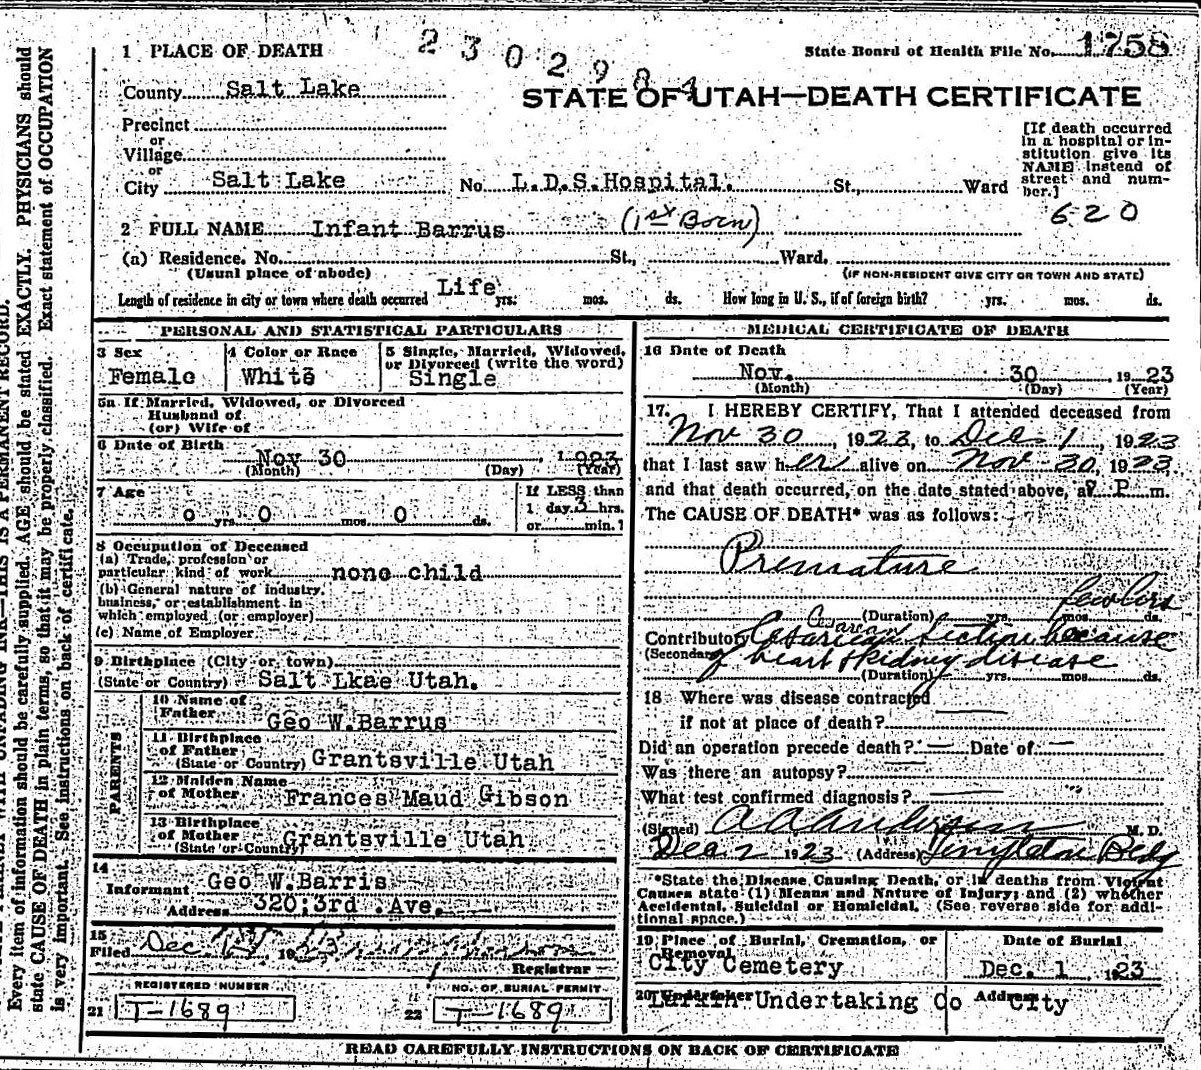 2302984
1 PLACE OF DEATH
State Board of Health File No. 1758
County Salt Lake
STATE OF UTAH—DEATH CERTIFICATE
Precinct
or
Village
or
City Salt Lake No. L.D.S.Hospital. St., Ward
[If death occurred
in a hospital or in-
stitution give its
NAME instead of
street and num-
ber.]
620
2 FULL NAME Infant Barrus (1st Born)
(a) Residence. No. St., Ward.
(Usual place of abode) (IF NON-RESIDENT GIVE CITY OR TOWN AND STATE)
Length of residence in city or town where death occurred Life yrs. mos. ds. How long in U. S., if of foreign birth? yrs. mos. ds.
PERSONAL AND STATISTICAL PARTICULARS
3 Sex
Female
4 Color or Race
White
5 Single, Married, Widowed,
or Divorced (write the word)
Single
5a If Married, Widowed, or Divorced
Husband of
(or) Wife of
6 Date of Birth
Nov 30, 1923
(Month) (Day) (Year)
7 Age
0 yrs. 0 mos. 0 ds.
If LESS than
1 day 3 hrs.
or min.?
8 Occupation of Deceased
(a) Trade, profession or
particular kind of work none child
(b) General nature of industry,
business, or establishment in
which employed (or employer)
(c) Name of Employer
9 Birthplace (City or town)
(State or Country) Salt Lkae Utah.
PARENTS
10 Name of
Father Geo W.Barrus
11 Birthplace
of Father
(State or Country) Grantsville Utah
12 Maiden Name
of Mother Frances Maud Gibson
13 Birthplace
of Mother
(State or Country) Grantsville Utah
14
Informant Geo W.Barris
Address 320 3rd .Ave.
15
Filed Dec 19
Registrar
REGISTERED NUMBER
21 T-1689
NO. OF BURIAL PERMIT
22 T-1689
MEDICAL CERTIFICATE OF DEATH
16 Date of Death
Nov. 30 1923
(Month) (Day) (Year)
17. I HEREBY CERTIFY, That I attended deceased from
Nov 30, 1923, to Dec 1, 1923
that I last saw her alive on Nov 30, 1923
and that death occurred, on the date stated above, at P m.
The CAUSE OF DEATH* was as follows:
Premature
few hrs
(Duration) yrs. mos. ds.
Cesarian
Contributory Cesarian Section because
(Secondary) of heart & kidney disease
(Duration) yrs. mos. ds.
18 Where was disease contracted
if not at place of death?
Did an operation precede death? — Date of —
Was there an autopsy?
What test confirmed diagnosis?
(Signed) A A Anderson M. D.
Dec 2 1923 (Address) Templeton Bldg
*State the Disease Causing Death, or in deaths from Violent
Causes state (1) Means and Nature of Injury; and (2) whether
Accidental, Suicidal or Homicidal. (See reverse side for addi-
tional space.)
19 Place of Burial, Cremation, or
Removal
City Cemetery
Date of Burial
Dec. 1 1923
20 Undertaker Larkin Undertaking Co
Address City
READ CAREFULLY INSTRUCTIONS ON BACK OF CERTIFICATE
WITH UNFADING INK—THIS IS A PERMANENT RECORD.
Every item of information should be carefully supplied. AGE should be stated EXACTLY. PHYSICIANS should
state CAUSE OF DEATH in plain terms, so that it may be properly classified. Exact statement of OCCUPATION
is very important. See instructions on back of certificate.